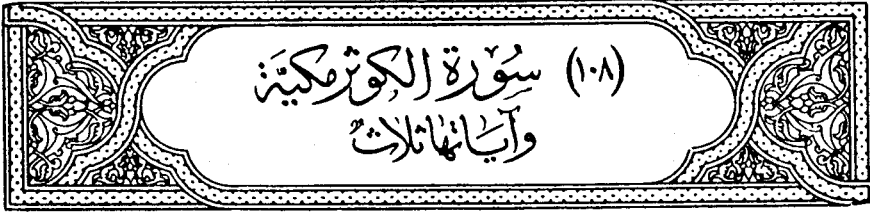 (١٠٨) سُوْرَة الكوثر مكيّة
وآيَاتها ثلاثٌ